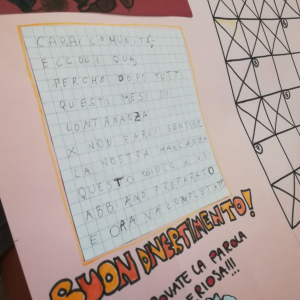 CARA COMUNITÀ,
ECCOCI QUA,
PERCHÈ DOPO TUTTI
QUESTI MESI DI
LONTANANZA
X NON FARVI SENTIRE
LA NOSTRA MANCANZA
QUESTO GIOCO X VOI
ABBIAMO PREPARATO
E ORA VA COMPLETATO
BUON DIVERTIMENTO!
TROVATE LA PAROLA